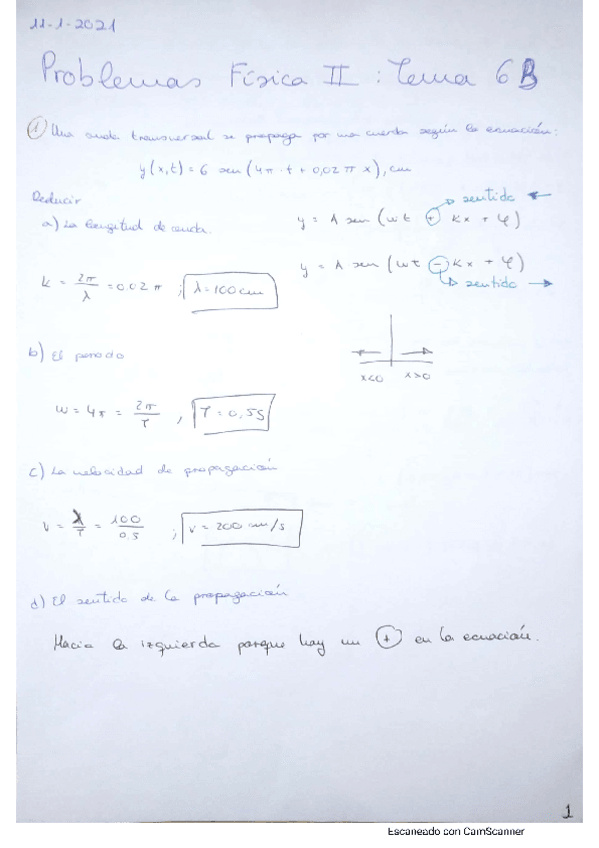 11-1-2021
Problemas Física II : Tema 6B
1) Una onda transversal se propaga por una cuerda según la ecuación:
y(x,t) = 6 sen (4π·t + 0,02 π x), cm
Deducir
a) La longitud de onda.
sentido ←
y = A sen (wt + kx + φ)
y = A sen (wt − kx + φ)
sentido →
k = 2π/λ = 0,02 π ; λ = 100 cm
x<0 x>0
b) El periodo
w = 4π = 2π/T , T = 0,5s
c) La velocidad de propagación
v = λ/T = 100/0,5 ; v = 200 cm/s
d) El sentido de la propagación
Hacia la izquierda porque hay un + en la ecuación.
1
Escaneado con CamScanner